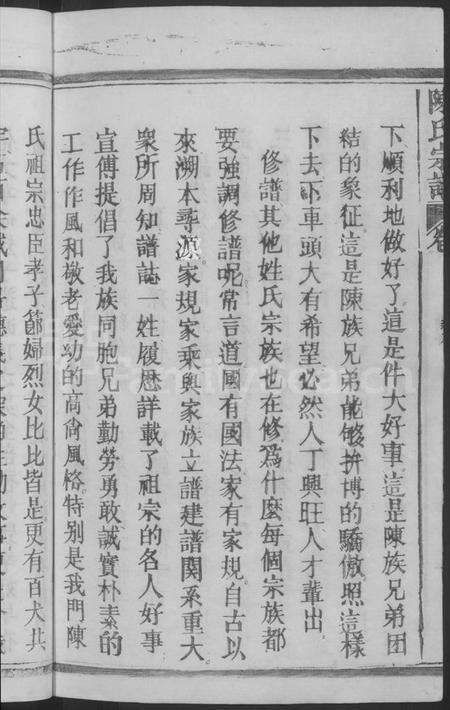 陳氏宗譜
下順利地做好了這是件大好事這是陳族兄弟团
結的象征這是陳族兄弟能够拚博的驕傲照這樣
下去下車頭大有希望必然人丁興旺人才輩出
修譜其他姓氏宗族也在修為什麼每個宗族都
要強調修譜呢常言道國有國法家有家規自古以
來溯本尋源家規家乘與家族立譜建譜関系重大
衆所周知譜誌一姓履歷詳載了祖宗的各人好事
宣傳提倡了我族同胞兄弟勤勞勇敢誠實朴素的
工作作風和敬老愛幼的高尚風格特别是我門陳
氏祖宗忠臣孝子節婦烈女比比皆是更有百犬共